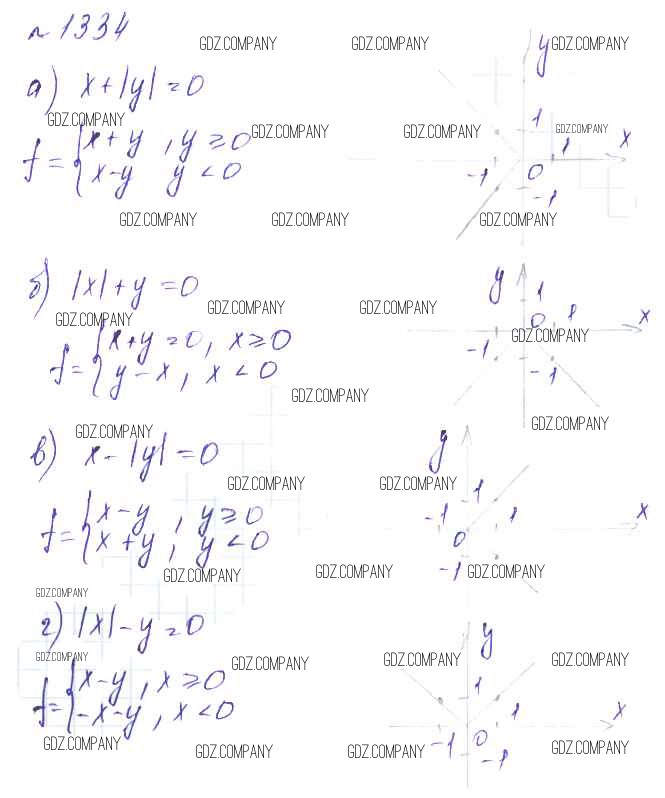 № 1334
GDZ.COMPANY GDZ.COMPANY y GDZ.COMPANY
а) x+|y|=0
GDZ.COMPANY GDZ.COMPANY GDZ.COMPANY 1 GDZ.COMPANY
f={x+y, y≥0 -1 0 1 x
x-y y<0 -1
GDZ.COMPANY GDZ.COMPANY GDZ.COMPANY
б) |x|+y=0 y 1
GDZ.COMPANY GDZ.COMPANY GDZ.COMPANY 0 1 x
f={x+y=0, x≥0 -1 GDZ.COMPANY
y-x, x<0 -1
GDZ.COMPANY
GDZ.COMPANY GDZ.COMPANY
в) x-|y|=0 y
GDZ.COMPANY GDZ.COMPANY 1
f={x-y, y≥0 -1 1 x
x+y, y<0 0
GDZ.COMPANY GDZ.COMPANY -1 GDZ.COMPANY
GDZ.COMPANY
г) |x|-y=0 y
GDZ.COMPANY GDZ.COMPANY GDZ.COMPANY GDZ.COMPANY
f={x-y, x≥0 1
-x-y, x<0 -1 0 1 x
GDZ.COMPANY GDZ.COMPANY GDZ.COMPANY -1 GDZ.COMPANY